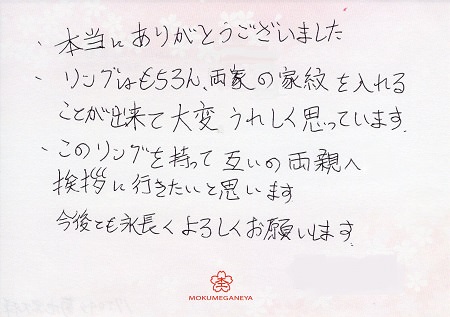 、本当にありがとうございました
、リングはもちろん、両家の家紋を入れる
ことが出来て大変うれしく思っています。
・このリングを持って互いの両親へ
挨拶に行きたいと思います
今後とも永長くよろしくお願いします。
MOKUMEGANEYA